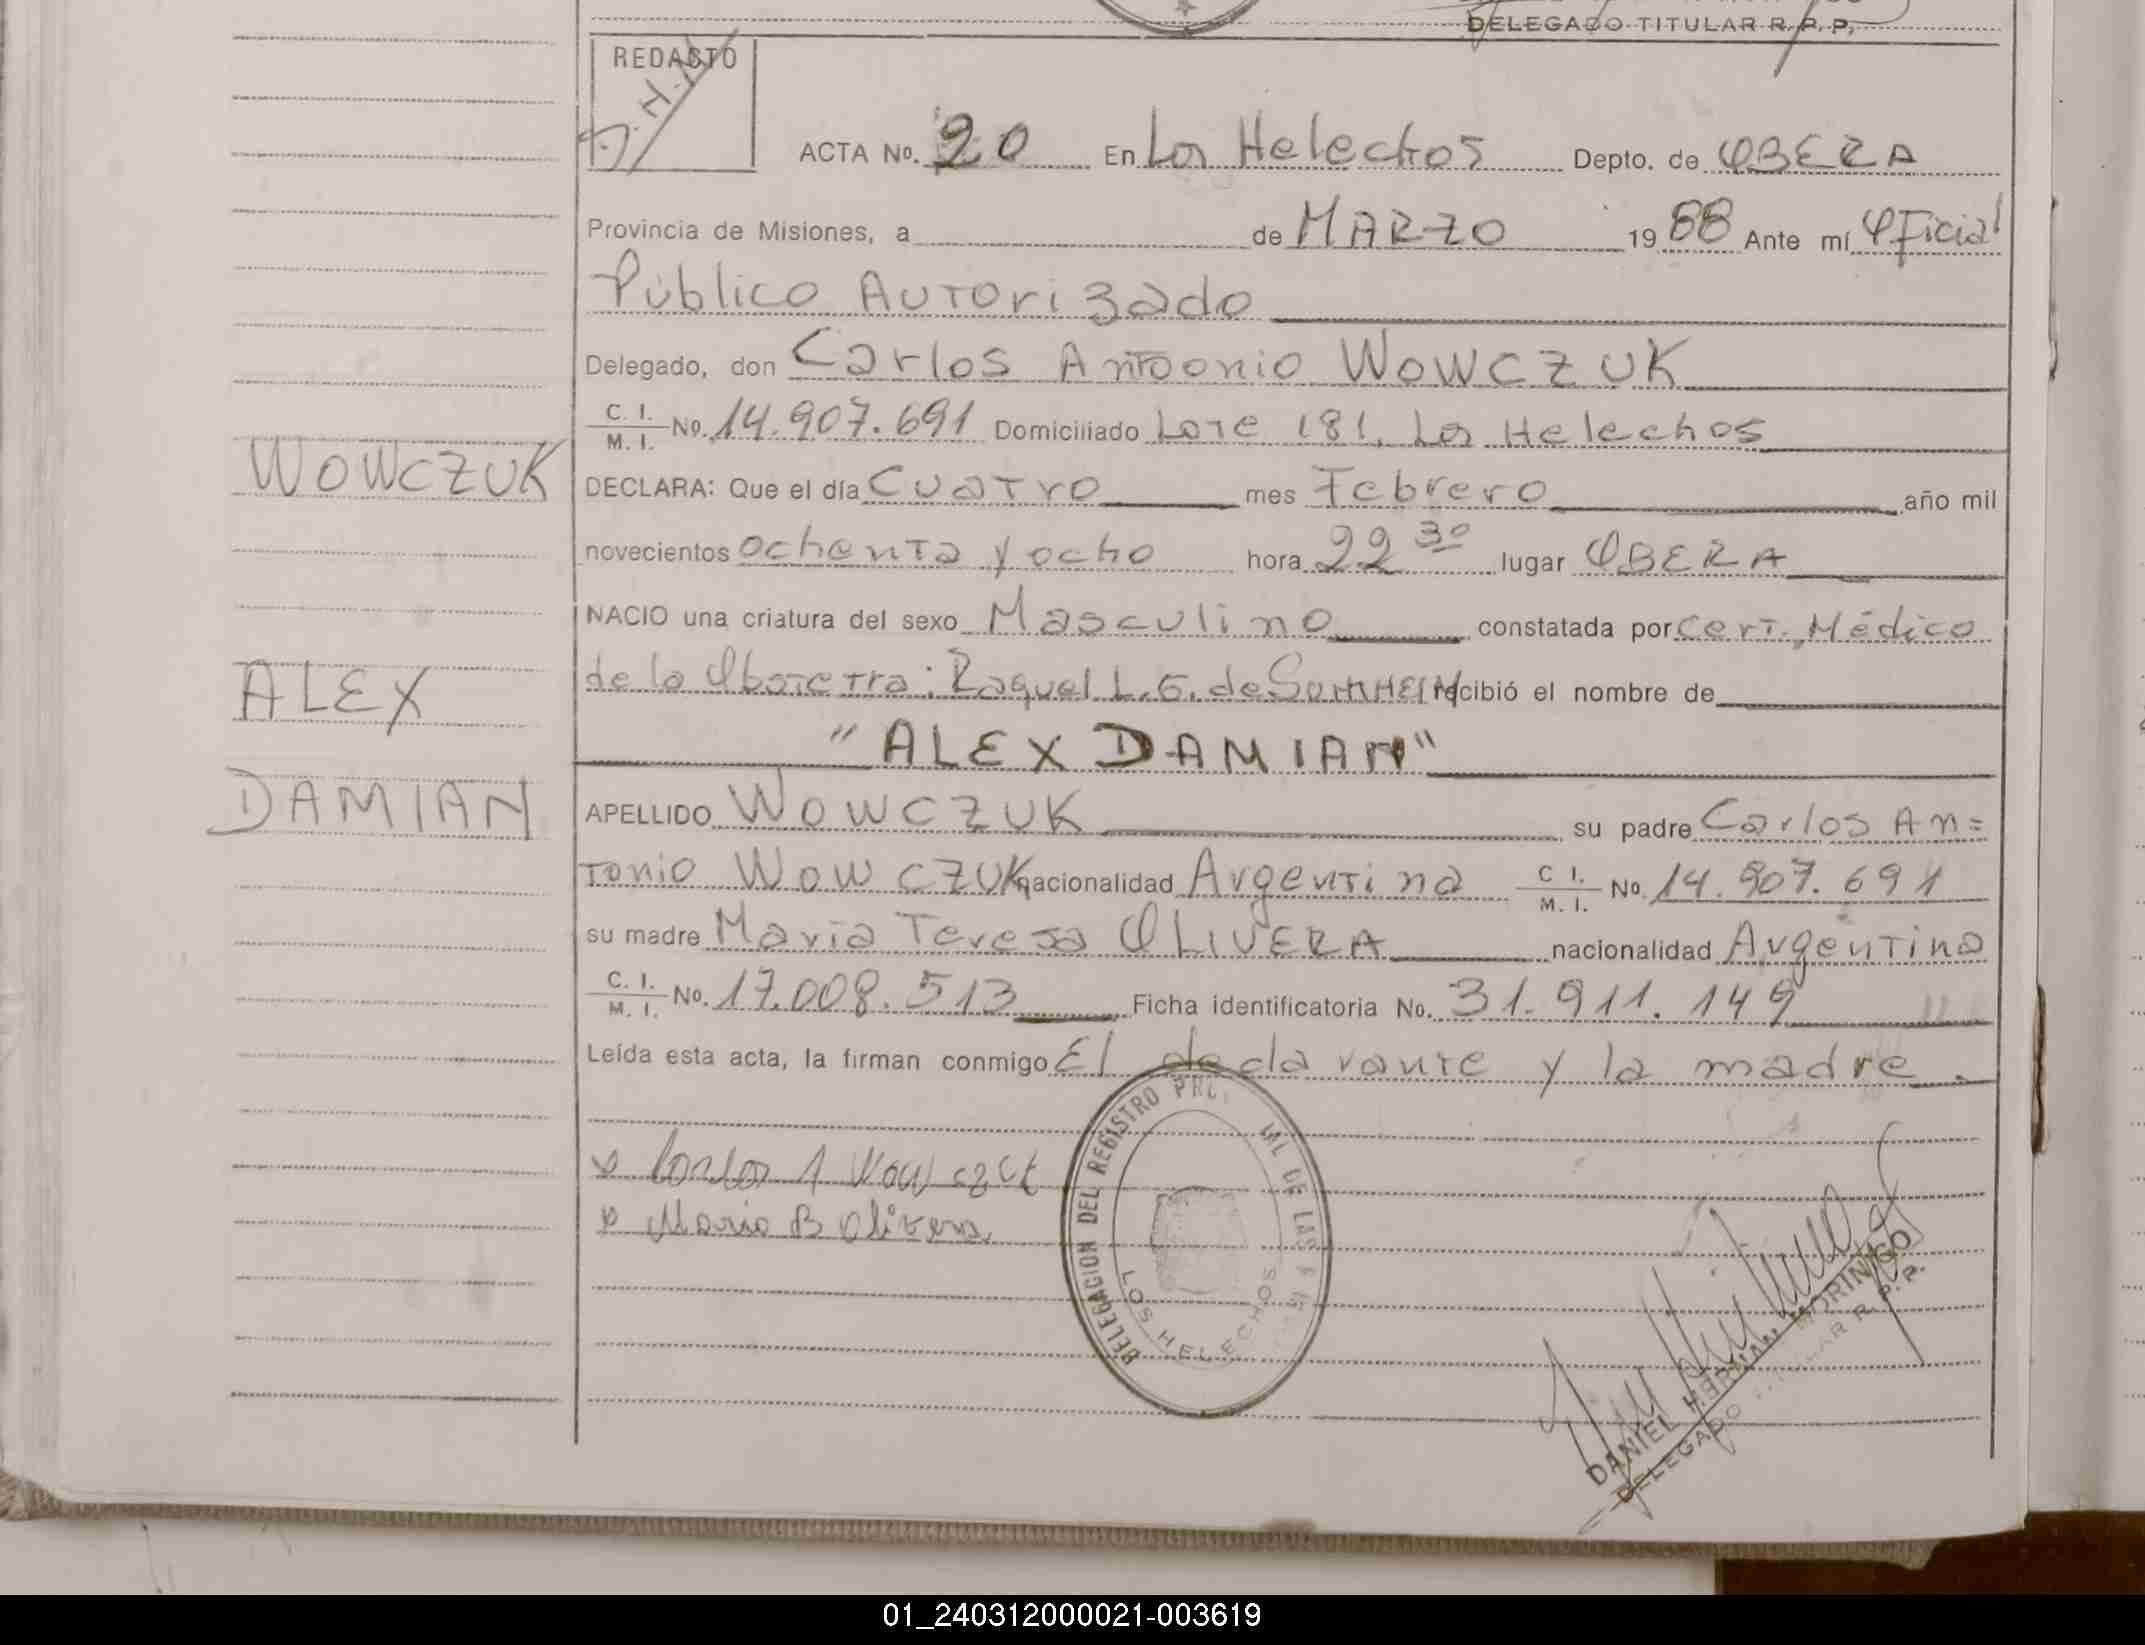 DELEGADO TITULAR R. P. P.
REDACTÓ
ACTA Nº. 20 En Los Helechos Depto. de OBERA
Provincia de Misiones, a de MARZO 1988 Ante mí Oficial
Público Autorizado
Delegado, don Carlos Antoonio WOWCZUK
C. I. M. I. Nº. 14.907.691 Domiciliado Lote 181, Los Helechos
WOWCZUK
DECLARA: Que el día Cuatro mes Febrero año mil
novecientos ochenta y ocho hora 22 30 lugar OBERA
NACIO una criatura del sexo Masculino constatada por Cert. Médico
de la Obstetra: Raquel L. G. de recibió el nombre de
ALEX
"ALEX DAMIAN"
DAMIAN
APELLIDO WOWCZUK su padre Carlos An=
tonio WOWCZUK nacionalidad Argentina C. I. M. I. Nº. 14.907.691
su madre María Teresa OLIVERA nacionalidad Argentina
C. I. M. I. Nº. 17.008.513 Ficha identificatoria No. 31.911.149
Leída esta acta, la firman conmigo El declarante y la madre.
DELEGACION DEL REGISTRO DE LAS
LOS HELECHOS
Carlos A Wowczuk
Maria B Olivera
DANIEL HERNAN MORINIGO
DELEGADO TITULAR R. P. P.
01_240312000021-003619